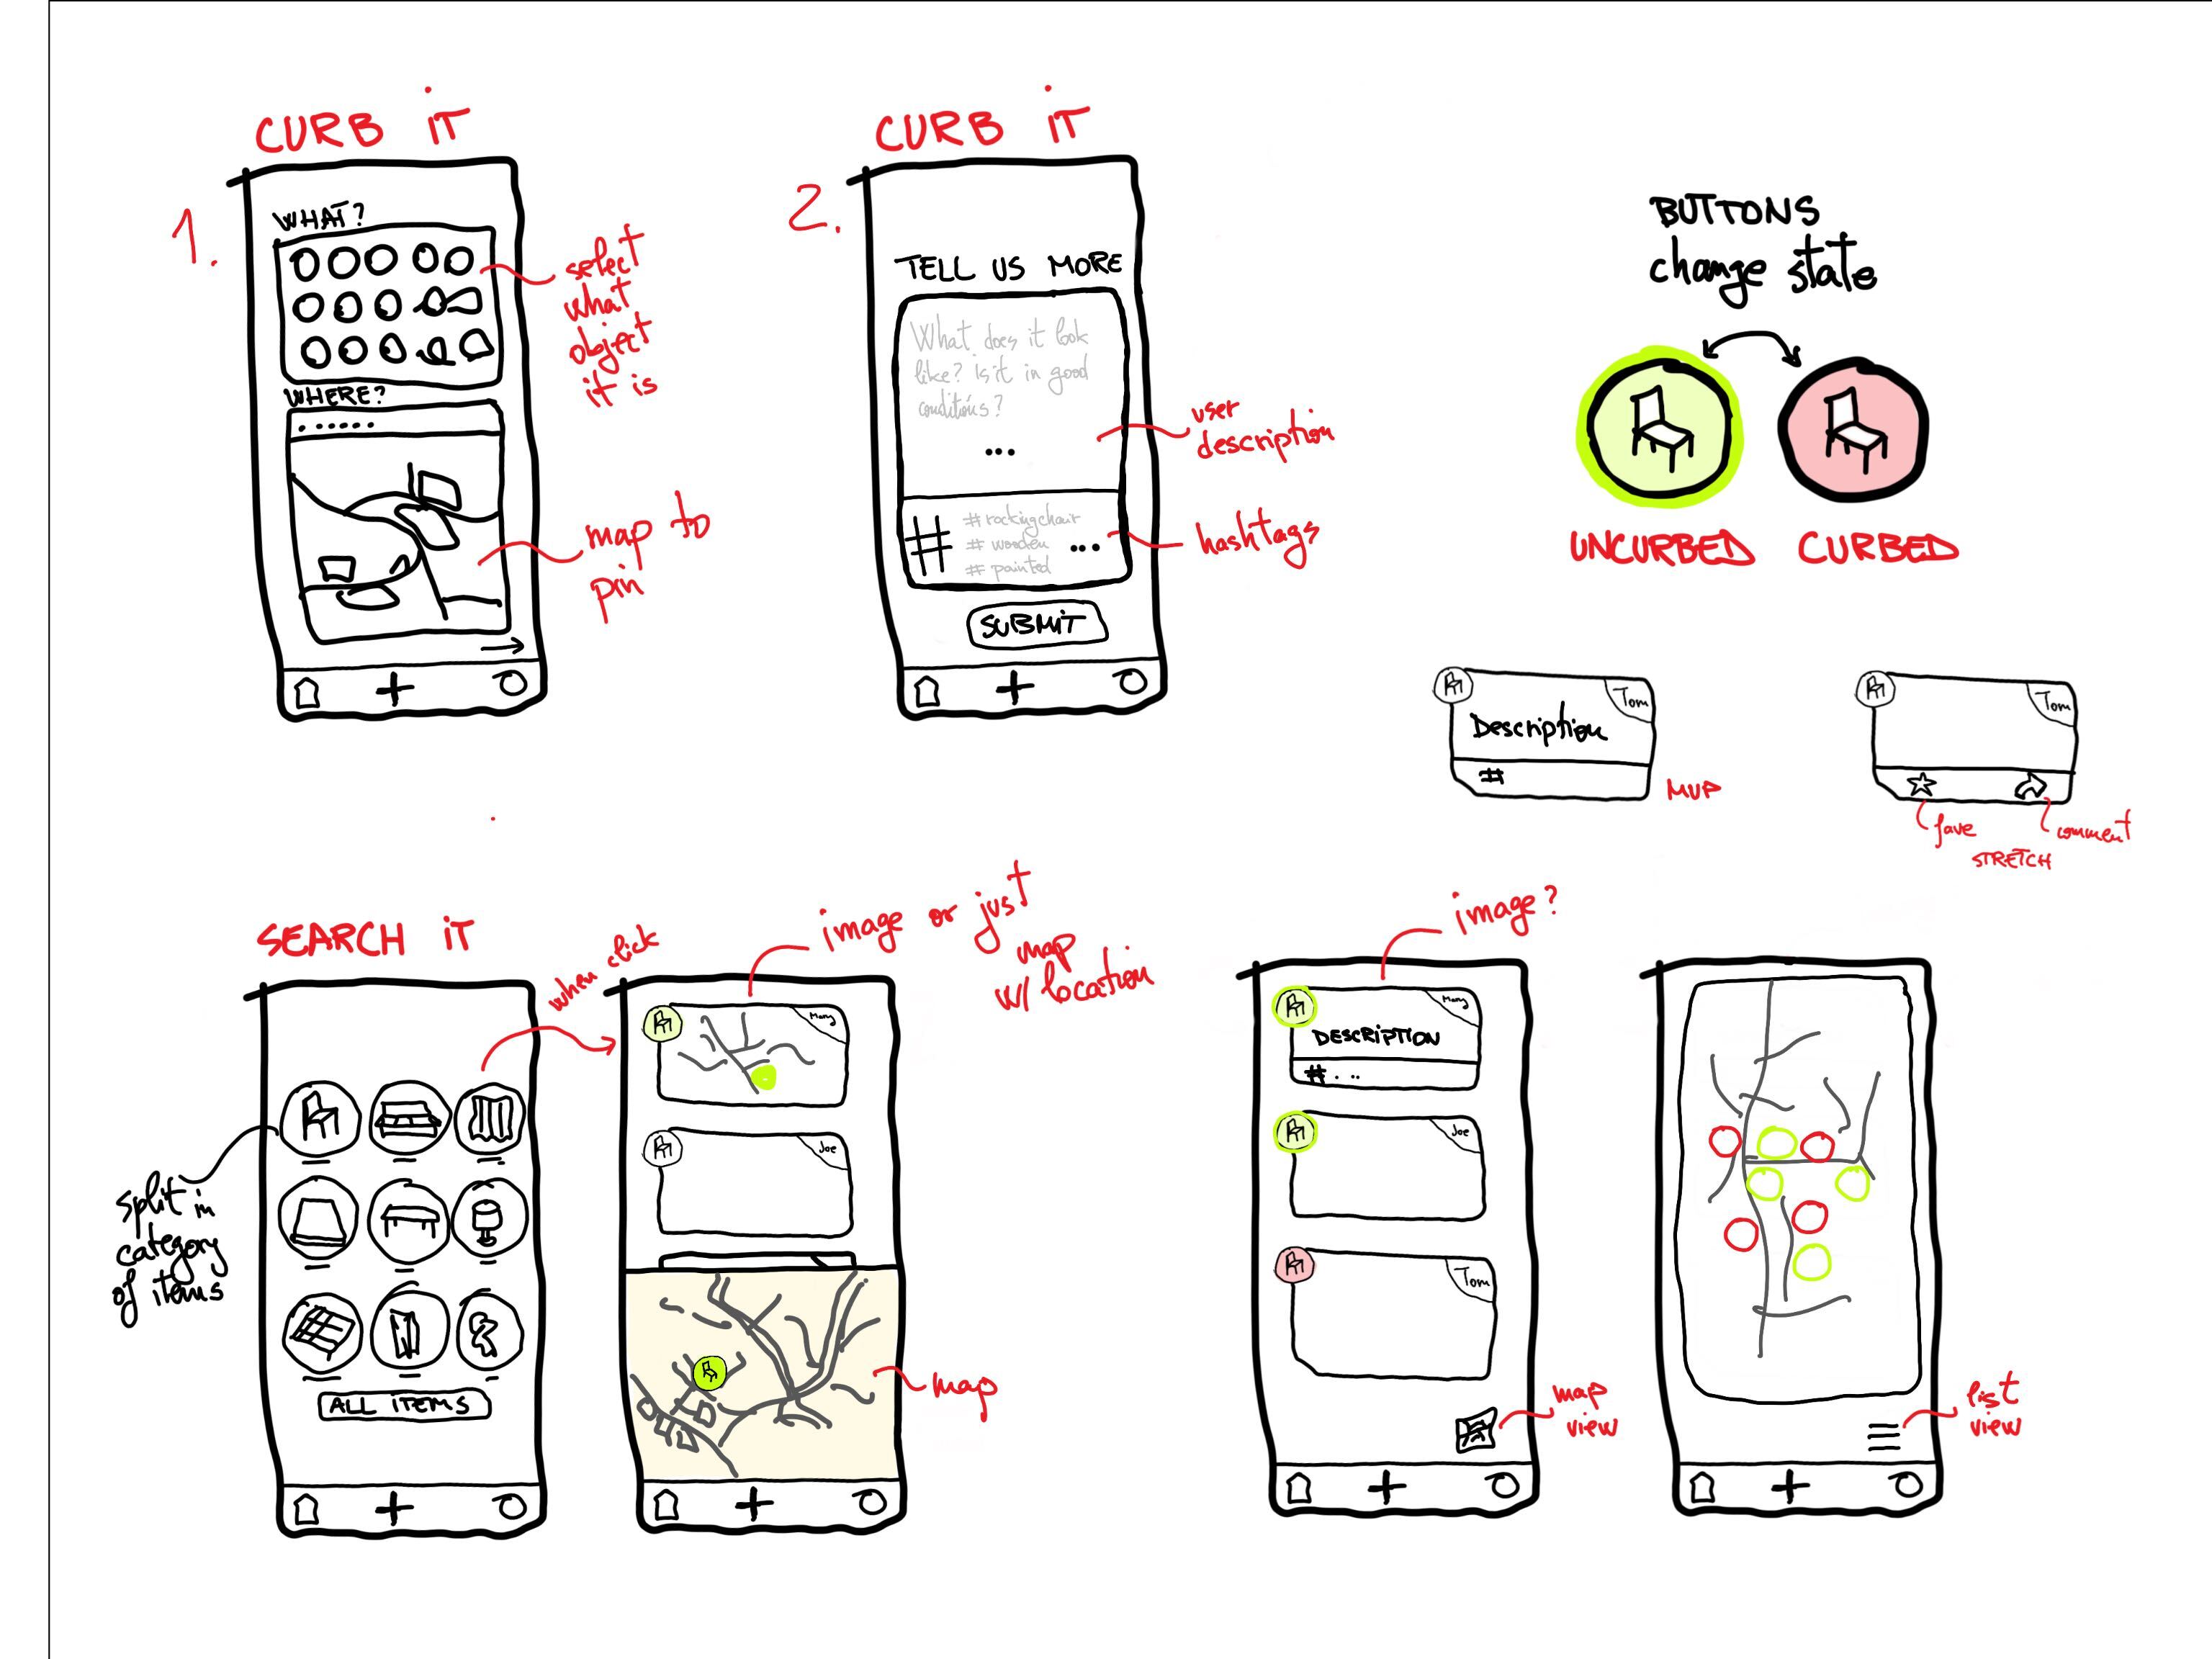 CURB iT
1.
WHAT?
select
what
object
it is
WHERE?
map to
pin
CURB iT
2.
TELL US MORE
What does it look
like? Is it in good
conditions?
...
user
description
#
# rockingchair
# wooden
# painted
...
hashtags
SUBMIT
BUTTONS
change state
UNCURBED
CURBED
Tom
Description
#
MVP
Tom
fave
comment
STRETCH
SEARCH iT
when click
split in
category
of items
ALL ITEMS
image or just
map
w/ location
Mary
Joe
map
image?
Mary
DESCRIPTION
# . ..
Joe
Tom
map
view
list
view